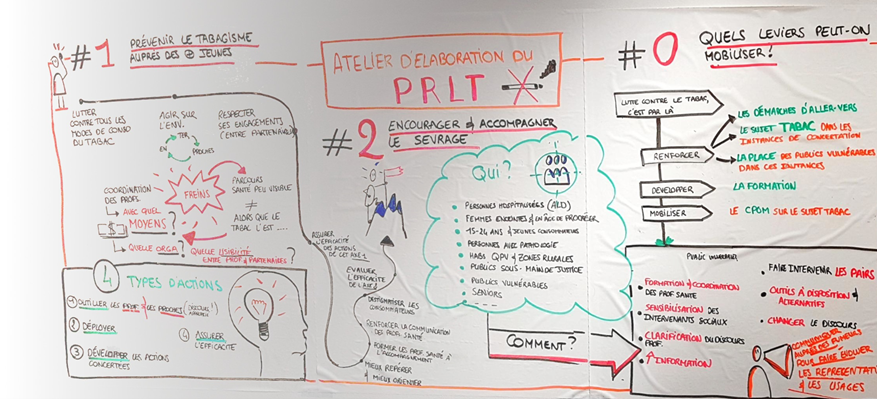 #1 PRÉVENIR LE TABAGISME
AUPRÈS DES JEUNES
LUTTER
CONTRE TOUS LES
MODES DE CONSO
DU TABAC
AGIR SUR
L'ENV.
TER
EN
PROCHES
RESPECTER
SES ENGAGEMENTS
ENTRE PARTENAIRES
FREINS
COORDINATION
DES PROFS.
AVEC QUEL
MOYENS?
$
QUELLE ORGA?
QUELLE LISIBILITÉ
ENTRE PROF & PARTENAIRES?
PARCOURS
SANTÉ PEU VISIBLE
≠
ALORS QUE LE
TABAC L'EST ....
4 TYPES D'ACTIONS
1 OUTILLER LES PROF & LES PROCHES
2 DÉPLOYER
3 DÉVELOPPER LES ACTIONS
CONCERTÉES
4 ASSURER
L'EFFICACITÉ
ATELIER D'ÉLABORATION DU
PRLT
#2 ENCOURAGER & ACCOMPAGNER
LE SEVRAGE
ASSURER
L'EFFICACITÉ
DES ACTIONS
DE CET AXE 1
ÉVALUER
L'EFFICACITÉ
DE L'AXE
DÉSTIGMATISER LES
CONSOMMATEURS
RENFORCER LA COMMUNICATION
DES PROF. SANTÉ
FORMER LES PROF. SANTÉ À
L'ACCOMPAGNEMENT
MIEUX REPÉRER
& MIEUX ORIENTER
Qui?
PERSONNES HOSPITALISÉES (ALD)
FEMMES ENCEINTES & EN ÂGE DE PROCRÉER
15-24 ANS & JEUNES CONSOMMATEURS
PERSONNES AVEC PATHOLOGIE
HABS QPV & ZONES RURALES
PUBLICS SOUS-MAIN DE JUSTICE
PUBLICS VULNÉRABLES
SENIORS
COMMENT?
#0 QUELS LEVIERS PEUT-ON
MOBILISER!
LUTTE CONTRE LE TABAC,
C'EST PAR LÀ
RENFORCER
LES DÉMARCHES D'ALLER-VERS
LE SUJET TABAC DANS LES
INSTANCES DE CONCERTATION
LA PLACE DES PUBLICS VULNÉRABLES
DANS CES INSTANCES
DÉVELOPPER
LA FORMATION
MOBILISER
LE CPOM SUR LE SUJET TABAC
FORMATION & COORDINATION
DES PROF. SANTÉ
SENSIBILISATION DES
INTERVENANTS SOCIAUX
CLARIFICATION DU DISCOURS
PROF.
↑ INFORMATION
FAIRE INTERVENIR LES PAIRS
OUTILS À DISPOSITION &
ALTERNATIFS
CHANGER LE DISCOURS
COMMUNIQUER
AUPRÈS DES FUMEURS
POUR FAIRE ÉVOLUER
LES REPRÉSENTAT
& LES USAGES